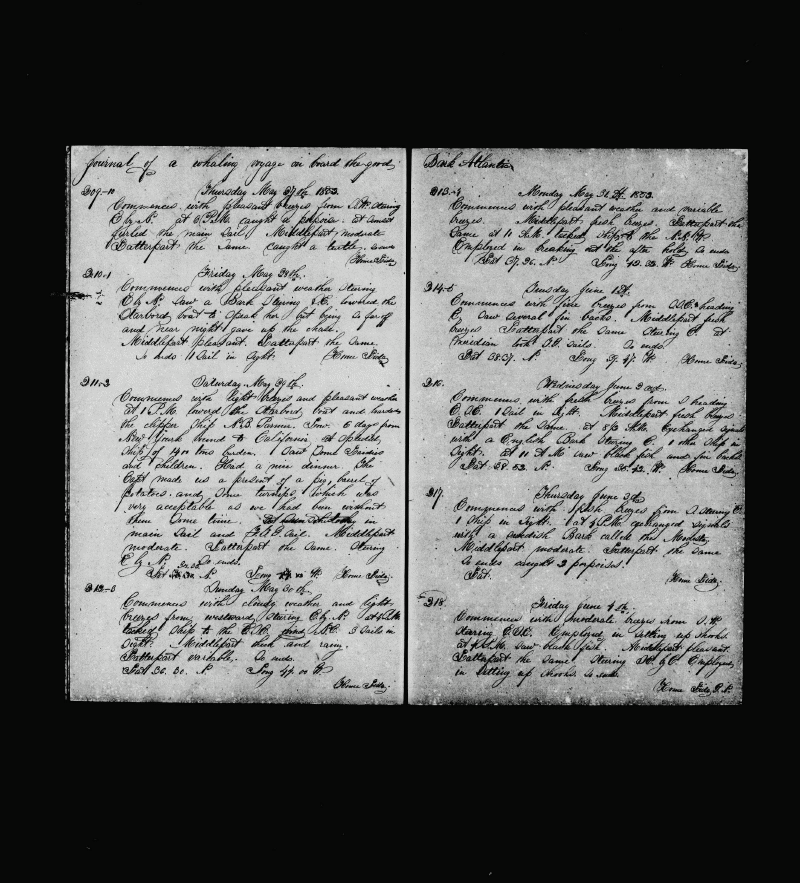 Journal of a whaling voyage on board the good
309-10 Thursday May 27th 1853.
Commences with pleasant breezes from S.W. stering
E by N. at 6 P.M. caught a popoise. at sunset
furled the main sail. Middlepart moderate
Latterpart the same. Caught a turtle. So ends
Home Side.
310-1 Friday May 28th.
Commences with pleasant weather stering
E by N. Saw a Bark Stering S.E. lowered the
Starbord boat to speak her but being so far off
and near night gave up the chase.
Middlepart pleasant. Latterpart the same.
So ends 1 Sail in Sight. Home Side.
311-2 Saturday May 29th.
Commences with light breezes and pleasant weather
at 1 P.M. lowered the Starbord boat and boarded
the clipper Ship N.B. Palmer. Low. 6 days from
New York bound to California. a splendid
ship of 1400 tons burden. I saw Some Ladies
and children. Had a nice dinner. The
Capt made us a present of a pig, barrel of
potatoes and some turnips. Which was
very acceptable as we had been without
them some time. in
main Sail and Sail. Middlepart
moderate. Latterpart the same. Stering
E by N. So ends.
Lat N. Long W. Home Side.
312-3 Sunday May 30th.
Commences with cloudy weather and light
breezes from westward stering E by N. at 4 P.M.
tacked ship to the wind N.E. 3 Sails in
Sight. Middlepart thick and rainy.
Latterpart variable. So ends.
Lat 36. 30. N. Long 47. 00 W.
Home Side.
Bark Atlantic
313-4 Monday May 31st. 1853.
Commences with pleasant weather and variable
breezes. Middlepart fresh breezes. Latterpart the
same at 11 A.M. tacked Ship to the N.N.W.
Employed in breaking out the after hold. So ends
Lat 37. 26. N. Long 42. 32. W. Home Side.
314-5 Tuesday June 1st.
Commences with fine breezes from S.S.E. heading
E. saw several fin backs. Middlepart fresh
breezes Latterpart the same Stering E. at
meridian took in Sails. So ends.
Lat 38.37. N. Long 39. 47. W. Home Side.
316. Wednesday June 2nd.
Commences with fresh breezes from S heading
E.S.E. 1 Sail in Sight. Middlepart fresh breezes
Latterpart the same. at A.M. Exchanged signals
with a English Bark Stering E. 1 other ship in
Sight. at 11 A.M. saw black fish and fin backs
Lat 38. 52. N. Long 36. 42. W. Home Side.
317. Thursday June 3rd
Commences with fresh breezes from S stering E.
1 Ship in Sight. at 4 P.M. exchanged signals
with a Swedish Bark called the Modesty
Middlepart moderate. Latterpart the same
So ends caught 2 porpoises.
Lat. Home Side.
318. Friday June 4th.
Commences with moderate breezes from S.W.
stering E.S.E. Employed in setting up shooks
at 4 P.M. saw black fish. Middlepart pleasant.
Latterpart the same Stering by E. Employed
in setting up shooks. So ends.
Home Side